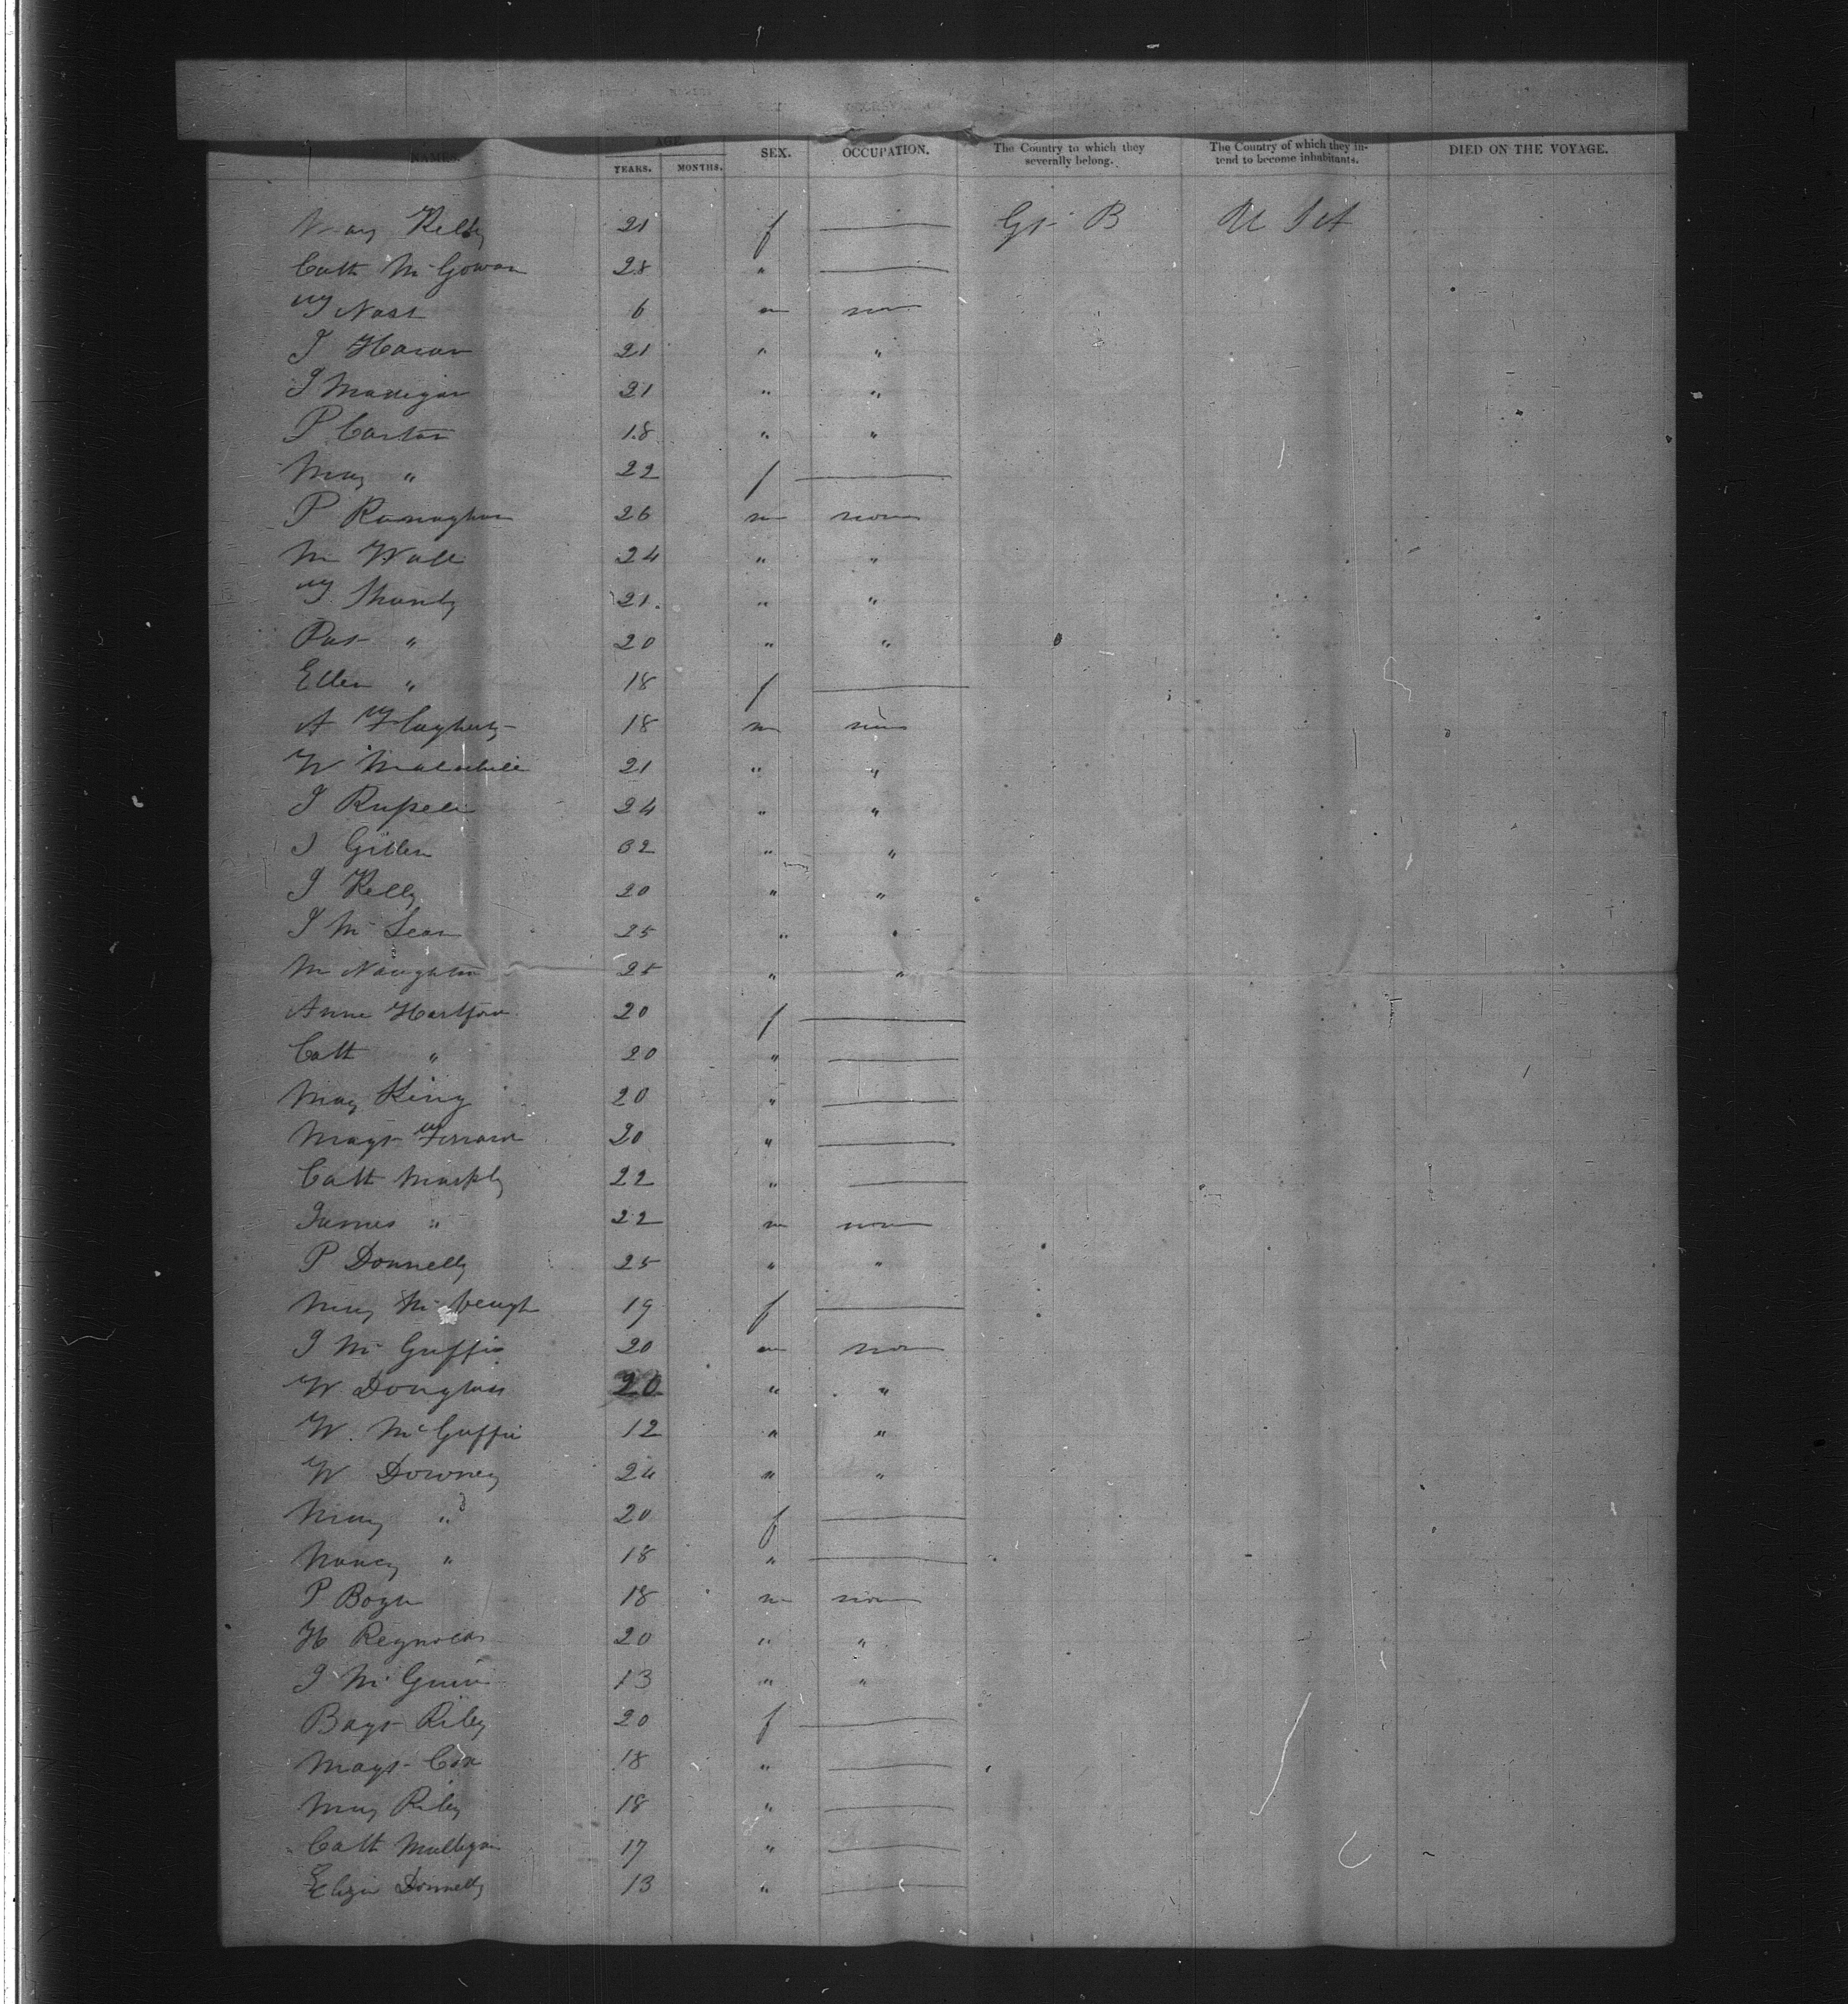 NAMES. AGE. SEX. OCCUPATION. The Country to which they severally belong. The Country of which they intend to become inhabitants. DIED ON THE VOYAGE.
YEARS. MONTHS.
Mary Kelly 21 f — Gt B U Sts
Cath McGowan 28 " —
6 m non
J Horan 21 " "
J Madigan 21 " "
P Carton 18 " "
Mary " 22 f —
P Ranaghan 26 m non
M Wall 24 " "
21 " "
Pat " 20 " "
Ellen " 18 f —
A Flagherty 18 m non
W 21 " "
J Russell 24 " "
J Gillen 32 " "
J Kelly 20 " "
J McLean 25 " "
M Naughton 25 " "
Anne Hartford 20 f —
Cath " 20 " —
Mary King 20 " —
Magt 20 " —
Cath Murphy 22 " —
James " 22 m non
P Donnelly 25 " "
Mary McVeugh 19 f —
J McGuffin 20 m non
W Douglass 20 " "
W. McGuffin 12 " "
W Downey 24 " "
Mary " 20 f —
Nancy " 18 " —
P Boyle 18 m non
H Reynolds 20 " "
J 13 " "
Riley 20 f —
Magt Cox 18 " —
Mary Riley 18 " —
Cath Mulligan 17 " —
Eliza Donnelly 13 " —